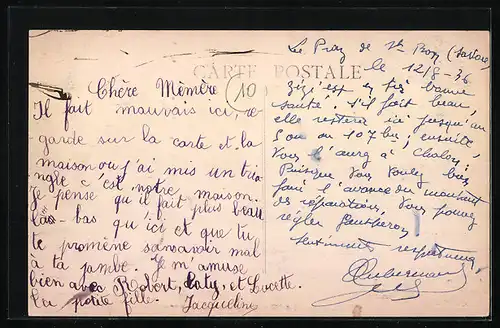 CARTE POSTALE
10
Chère Mémère
Il fait mauvais ici, re-
garde sur la carte et la
maison ou j'ai mis un trian
gle c'est notre maison.
Je pense qu'il fait plus beau
là-bas qu'ici et que tu
te promène sans avoir mal
à ta jambe. Je m'amuse
bien avec Robert, Caty, et Lucette.
La petite fille. Jacqueline
Le Praz de St Bon (Savoie)
le 12/8-36
Zizi est en très bonne
santé. S'il fait beau,
elle restera ici jusqu'au
5 ou au 10 7bre, ensuite
Vous l'aurez à
Puisque Vous voulez bien
faire l'avance du montant
des réparations, Vous pouvez
régler
Sentiments respectueux